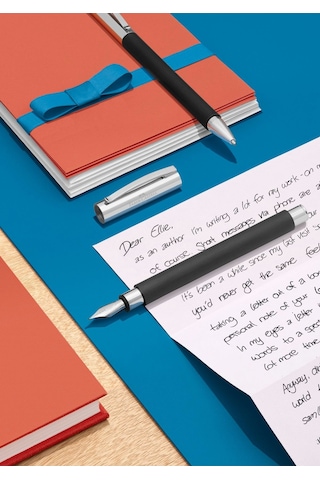 Dear Ellie,
as an author I'm writing a lot for my work - on m
of course short messages via phone are a
It's been a while since my last visit
you'd never get the same feel
taking a letter out of a bo
personal note of your
In my eyes a letter
words to a spec
lot more time
Anyway,
world
sam@